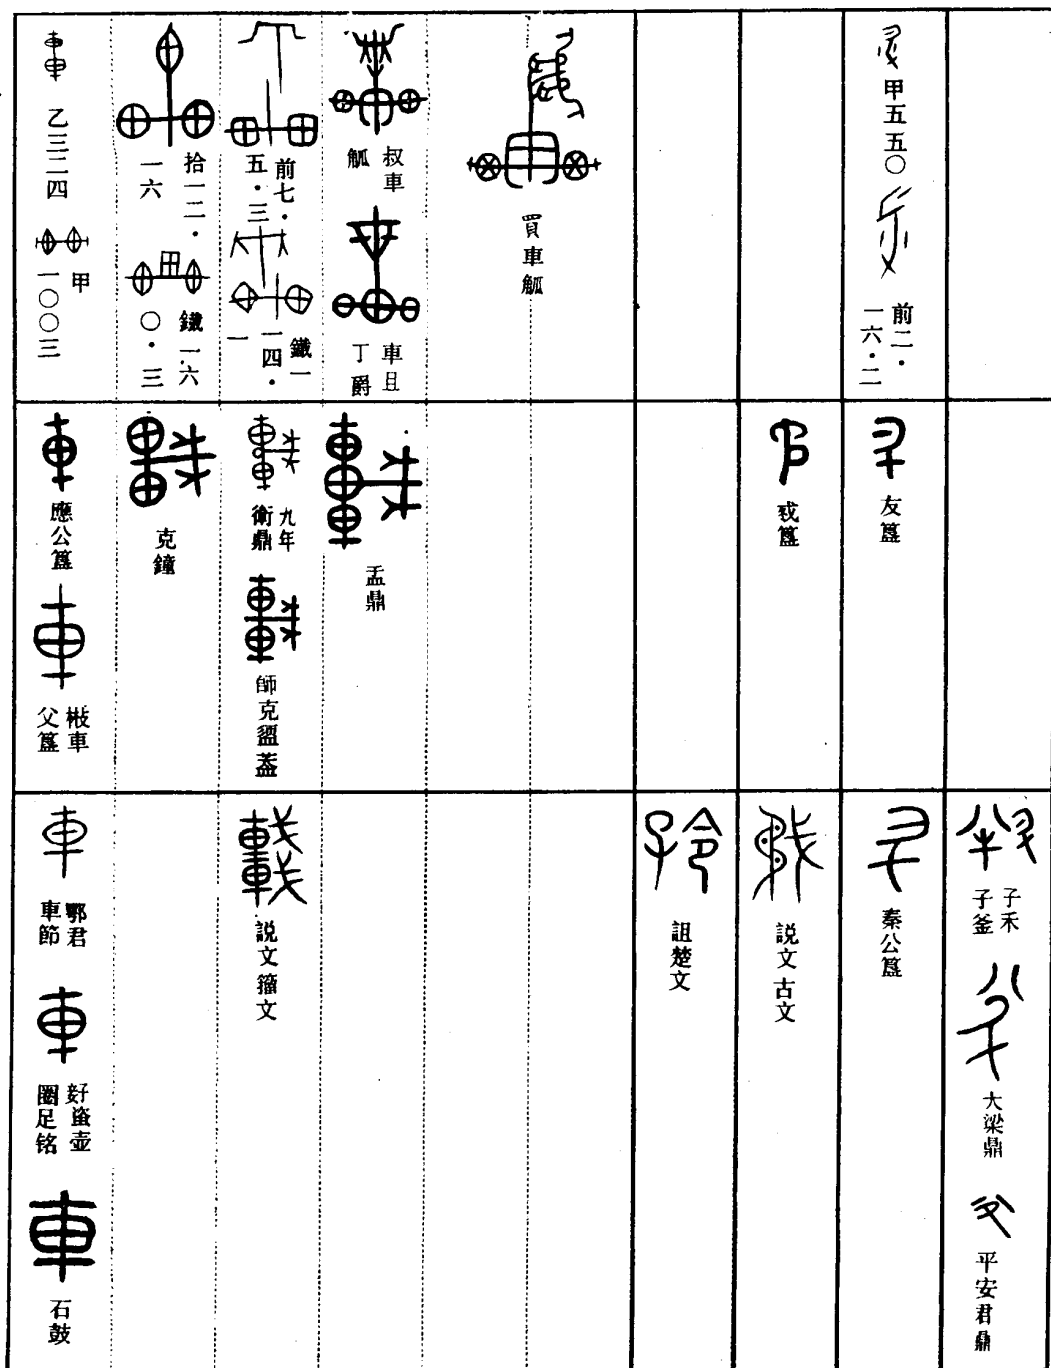 甲五五〇
前二・
一六・二
買車觚
叔車
觚
車且
丁爵
前七・
五・三
鐵一
一四・
一
拾一二・
一六
鐵一六
〇・三
乙三二四
甲
一〇〇三
友簋
孟鼎
九年
衛鼎
師克盨蓋
克鐘
應公簋
車
父簋
子禾
子釜
大梁鼎
平安君鼎
秦公簋
説文古文
詛楚文
説文籀文
鄂君
車節
壺
圈足铭
石鼓